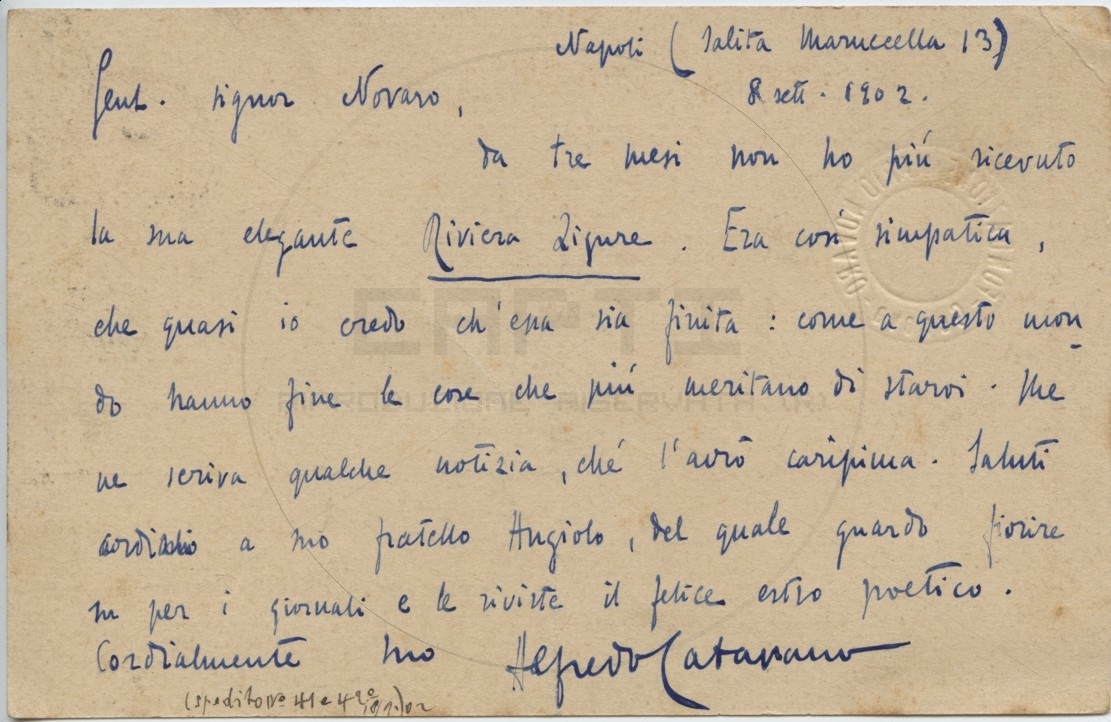 Napoli (Salita Maruccella 13)
8 sett. 1902.
Gent. signor Novaro,
da tre mesi non ho più ricevuto
la sua elegante Riviera Ligure. Era così simpatica,
che quasi io credo ch'essa sia finita: come a questo mon
do hanno fine le cose che più meritano di starvi. Me
ne scriva qualche notizia, ché l'avrò carissima. Saluti
a suo fratello Angiolo, del quale guardo fiorire
su per i giornali e le riviste il felice estro poetico.
Cordialmente suo Alfredo Catapano
(spedito no 41 e 42
CAPTI
RIPRODUZIONE RISERVATA (R)